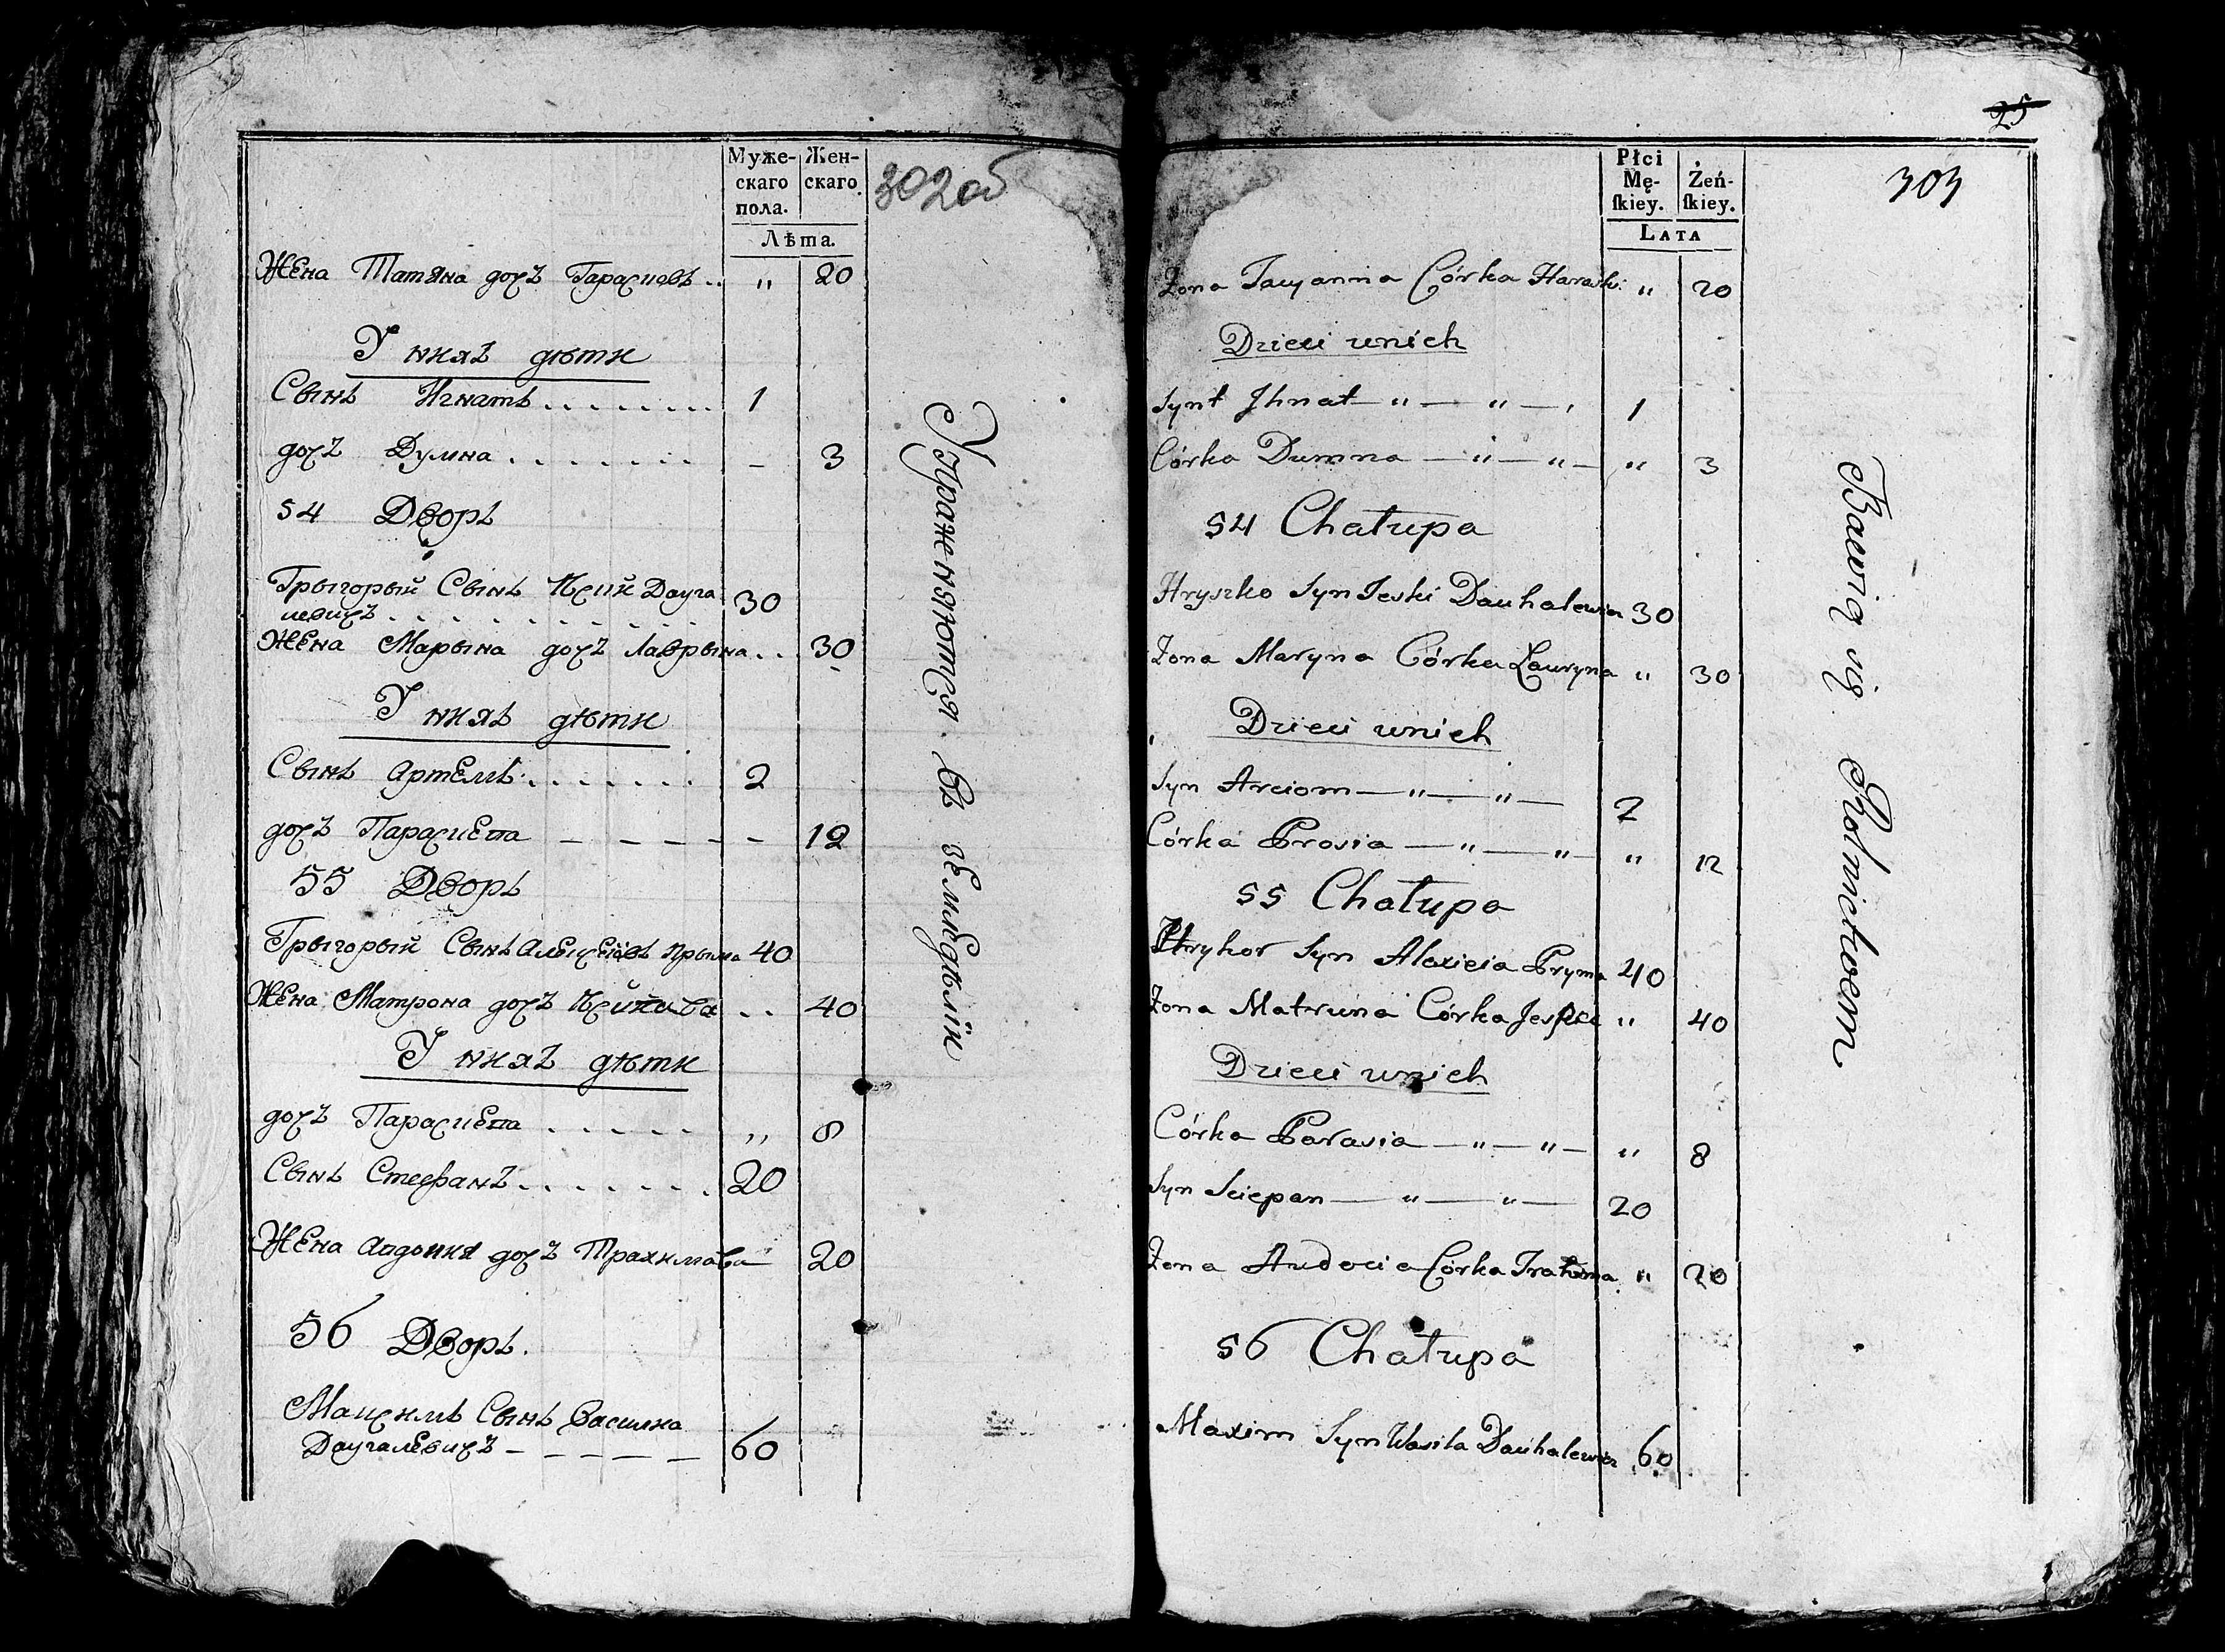 Муже-
скаго
пола.
Жен-
скаго
Лѣта.
302об
Жена Татяна дочъ Тарасцовъ .. „ 20
У нихъ дѣти
Сынъ Игнатъ . . . . . . . 1
дочъ Думна . . . . . . . – 3
54 Дворъ
Грыгорый Сынъ Доуга 30
левичъ . . . . . . . . . . .
Жена Марына дочъ Лаврына . . 30
У нихъ дѣти
Сынъ Артемъ . . . . . . . 2
дочъ Параскева – – – – – 12
55 Дворъ
Грыгорый Сынъ Прыма 40
Жена Матрона дочъ . . 40
У нихъ дѣти
дочъ Параскева . . . . . „ 8
Сынъ Стефанъ . . . . . . . 20
Жена дочъ Трахимова 20
56 Дворъ.
Максимъ Сынъ Василка
Доугалевичъ – – – – – 60
Упражняются въ земледѣлiи
25
303
Płci
Mę-
ſkiey.
Żeń-
ſkiey.
LATA
Żona Tacyanna Córka „ 20
Dzieci unich
Synt Jhnat — „ — „ — 1
Córka Dumna — „ — „ — „ 3
54 Chałupa
Hryszko Syn Jeski Dauhalewicz 30
Żona Maryna Córka Lauryna „ 30
Dzieci unich
Syn Arciom — „ — „ — 2
Córka Prosia — „ — „ — „ 12
55 Chałupa
Hryhor Syn Alexieia Pryma 40
Żona Matruna Córka Jeski „ 40
Dzieci unich
Córka Parasia — „ — „ — „ 8
Syn Sciepan — „ — „ — 20
Żona Audocia Córka Trahima „ 20
56 Chałupa
Maxim Syn Wasila Dauhalewicz 60
Bawią się Rolnictwem